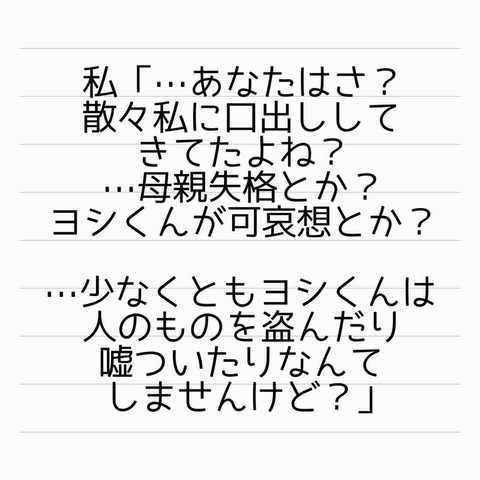 私「…あなたはさ？
散々私に口出しして
きてたよね？
…母親失格とか？
ヨシくんが可哀想とか？
…少なくともヨシくんは
人のものを盗んだり
嘘ついたりなんて
しませんけど？」